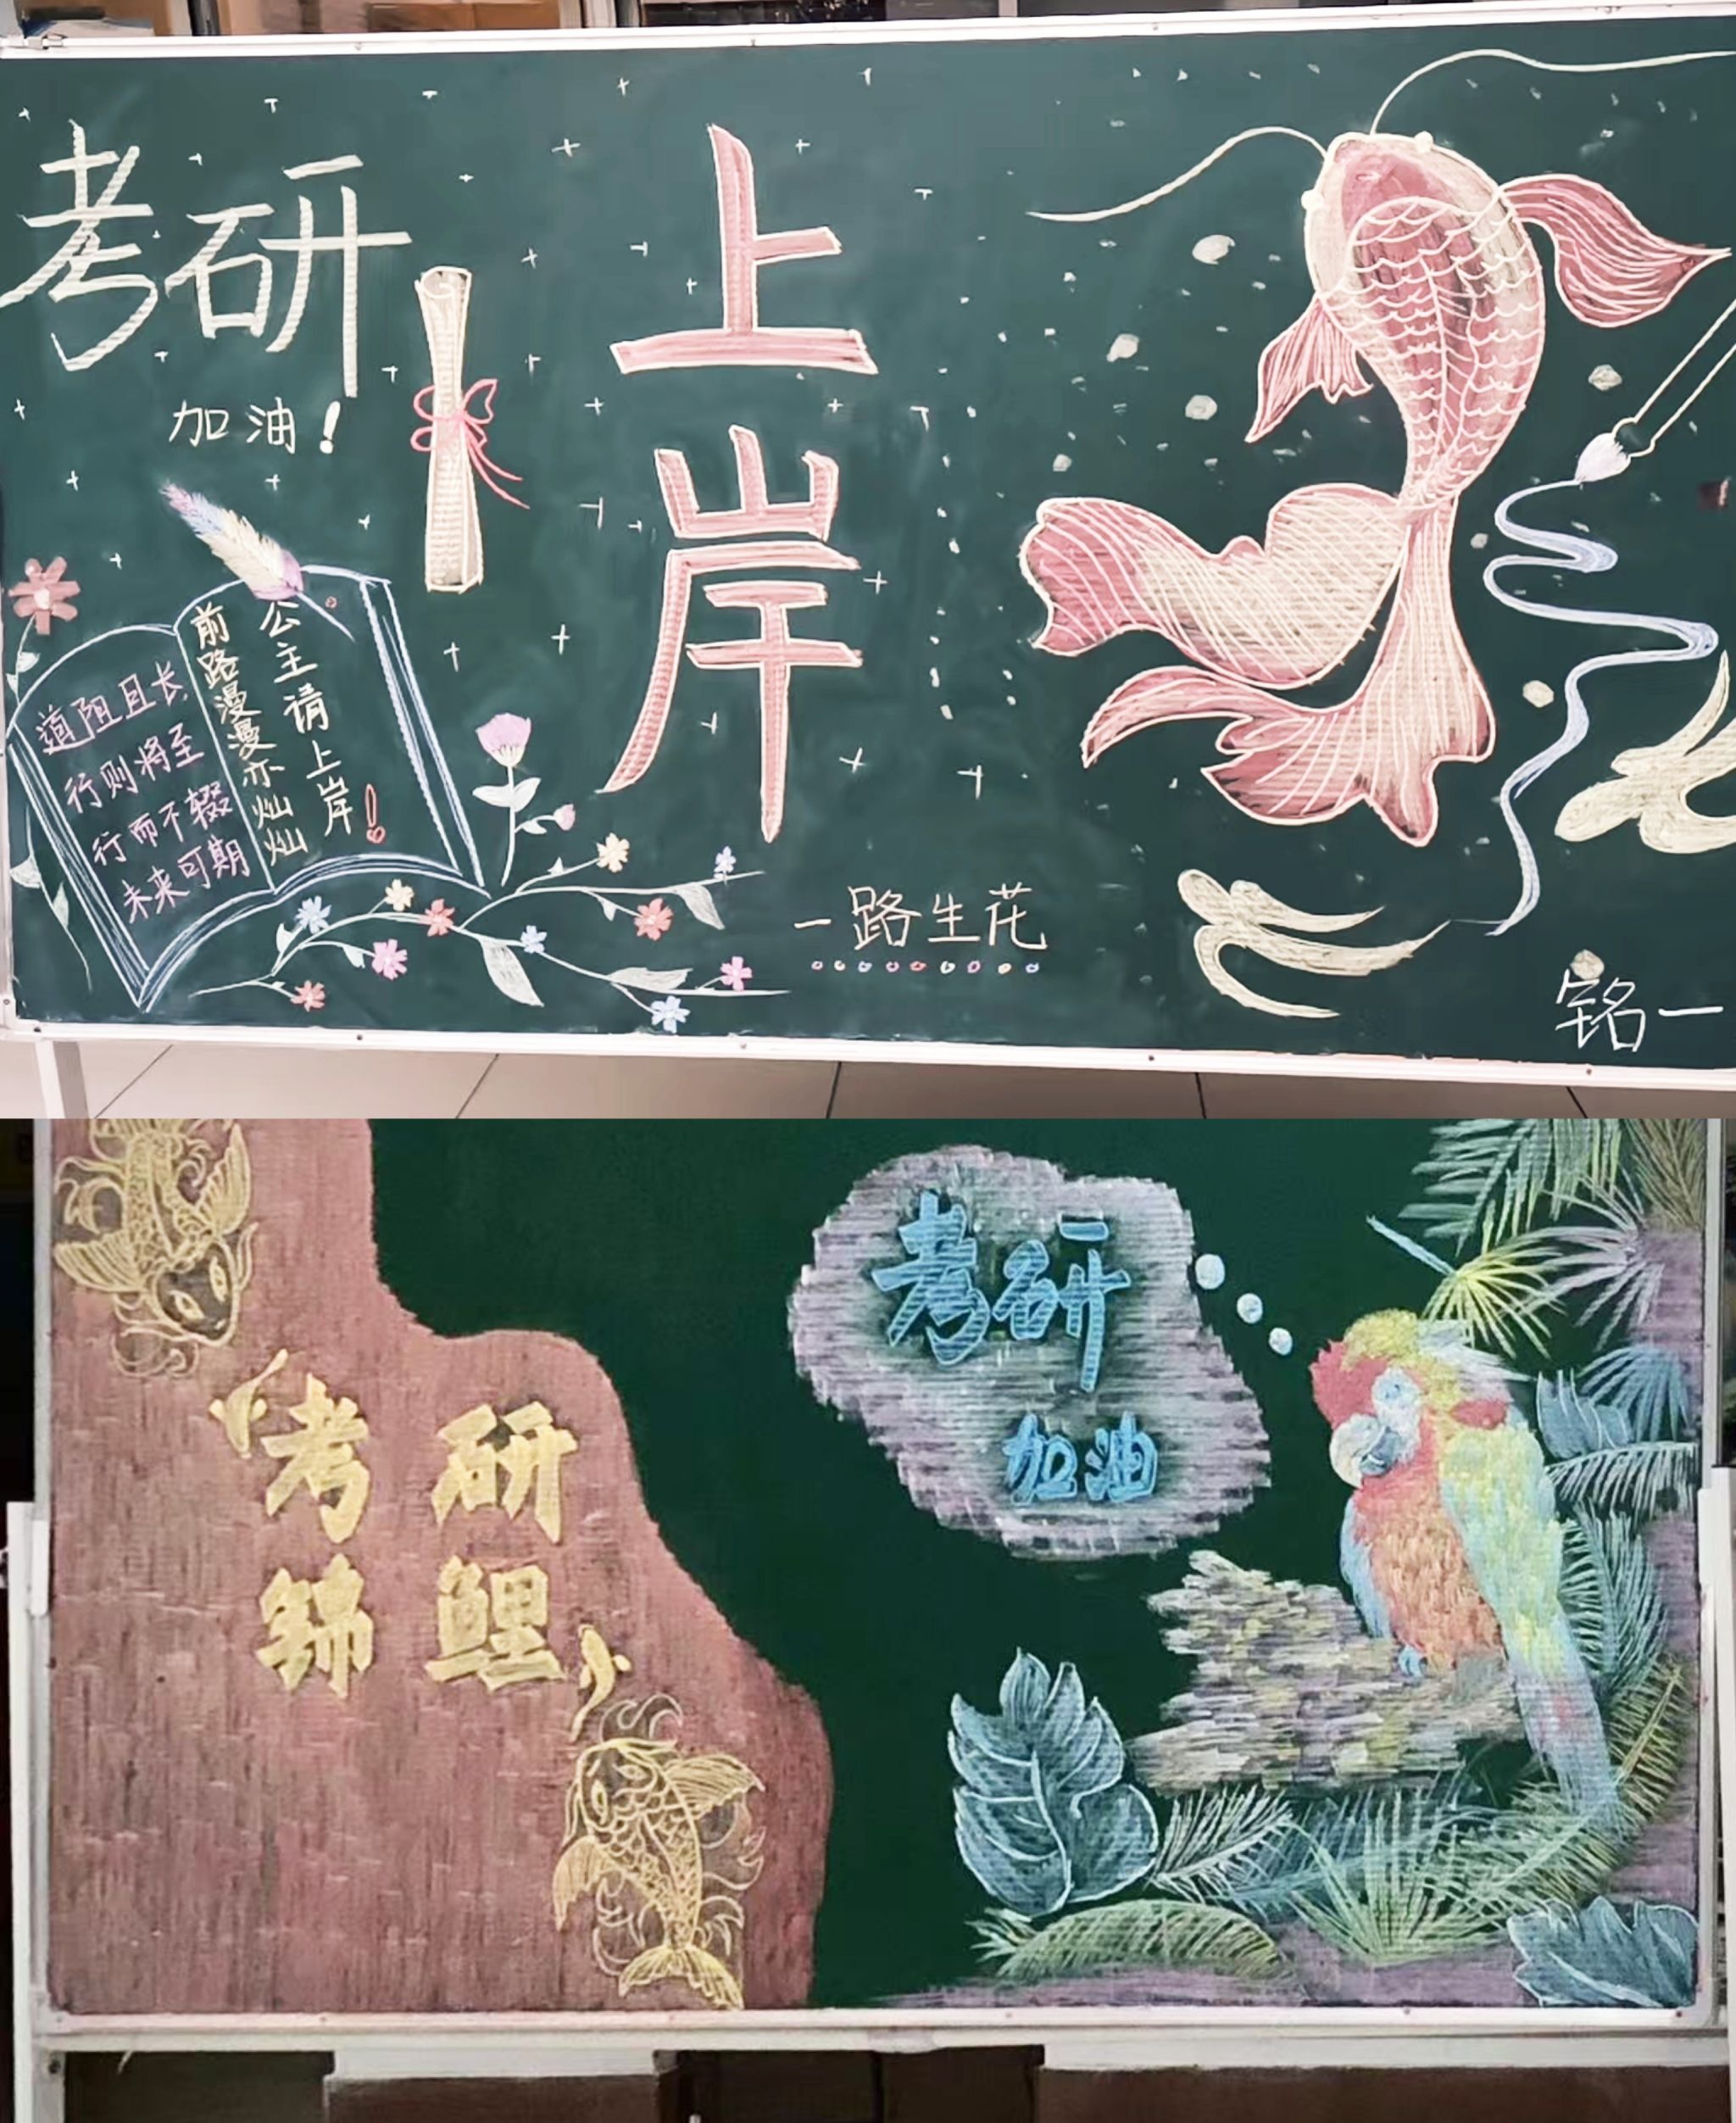 考研
加油！
上岸
公主请上岸！
前路漫漫亦灿灿
道阻且长
行则将至
行而不辍
未来可期
一路生花
考研
加油
考研
锦鲤